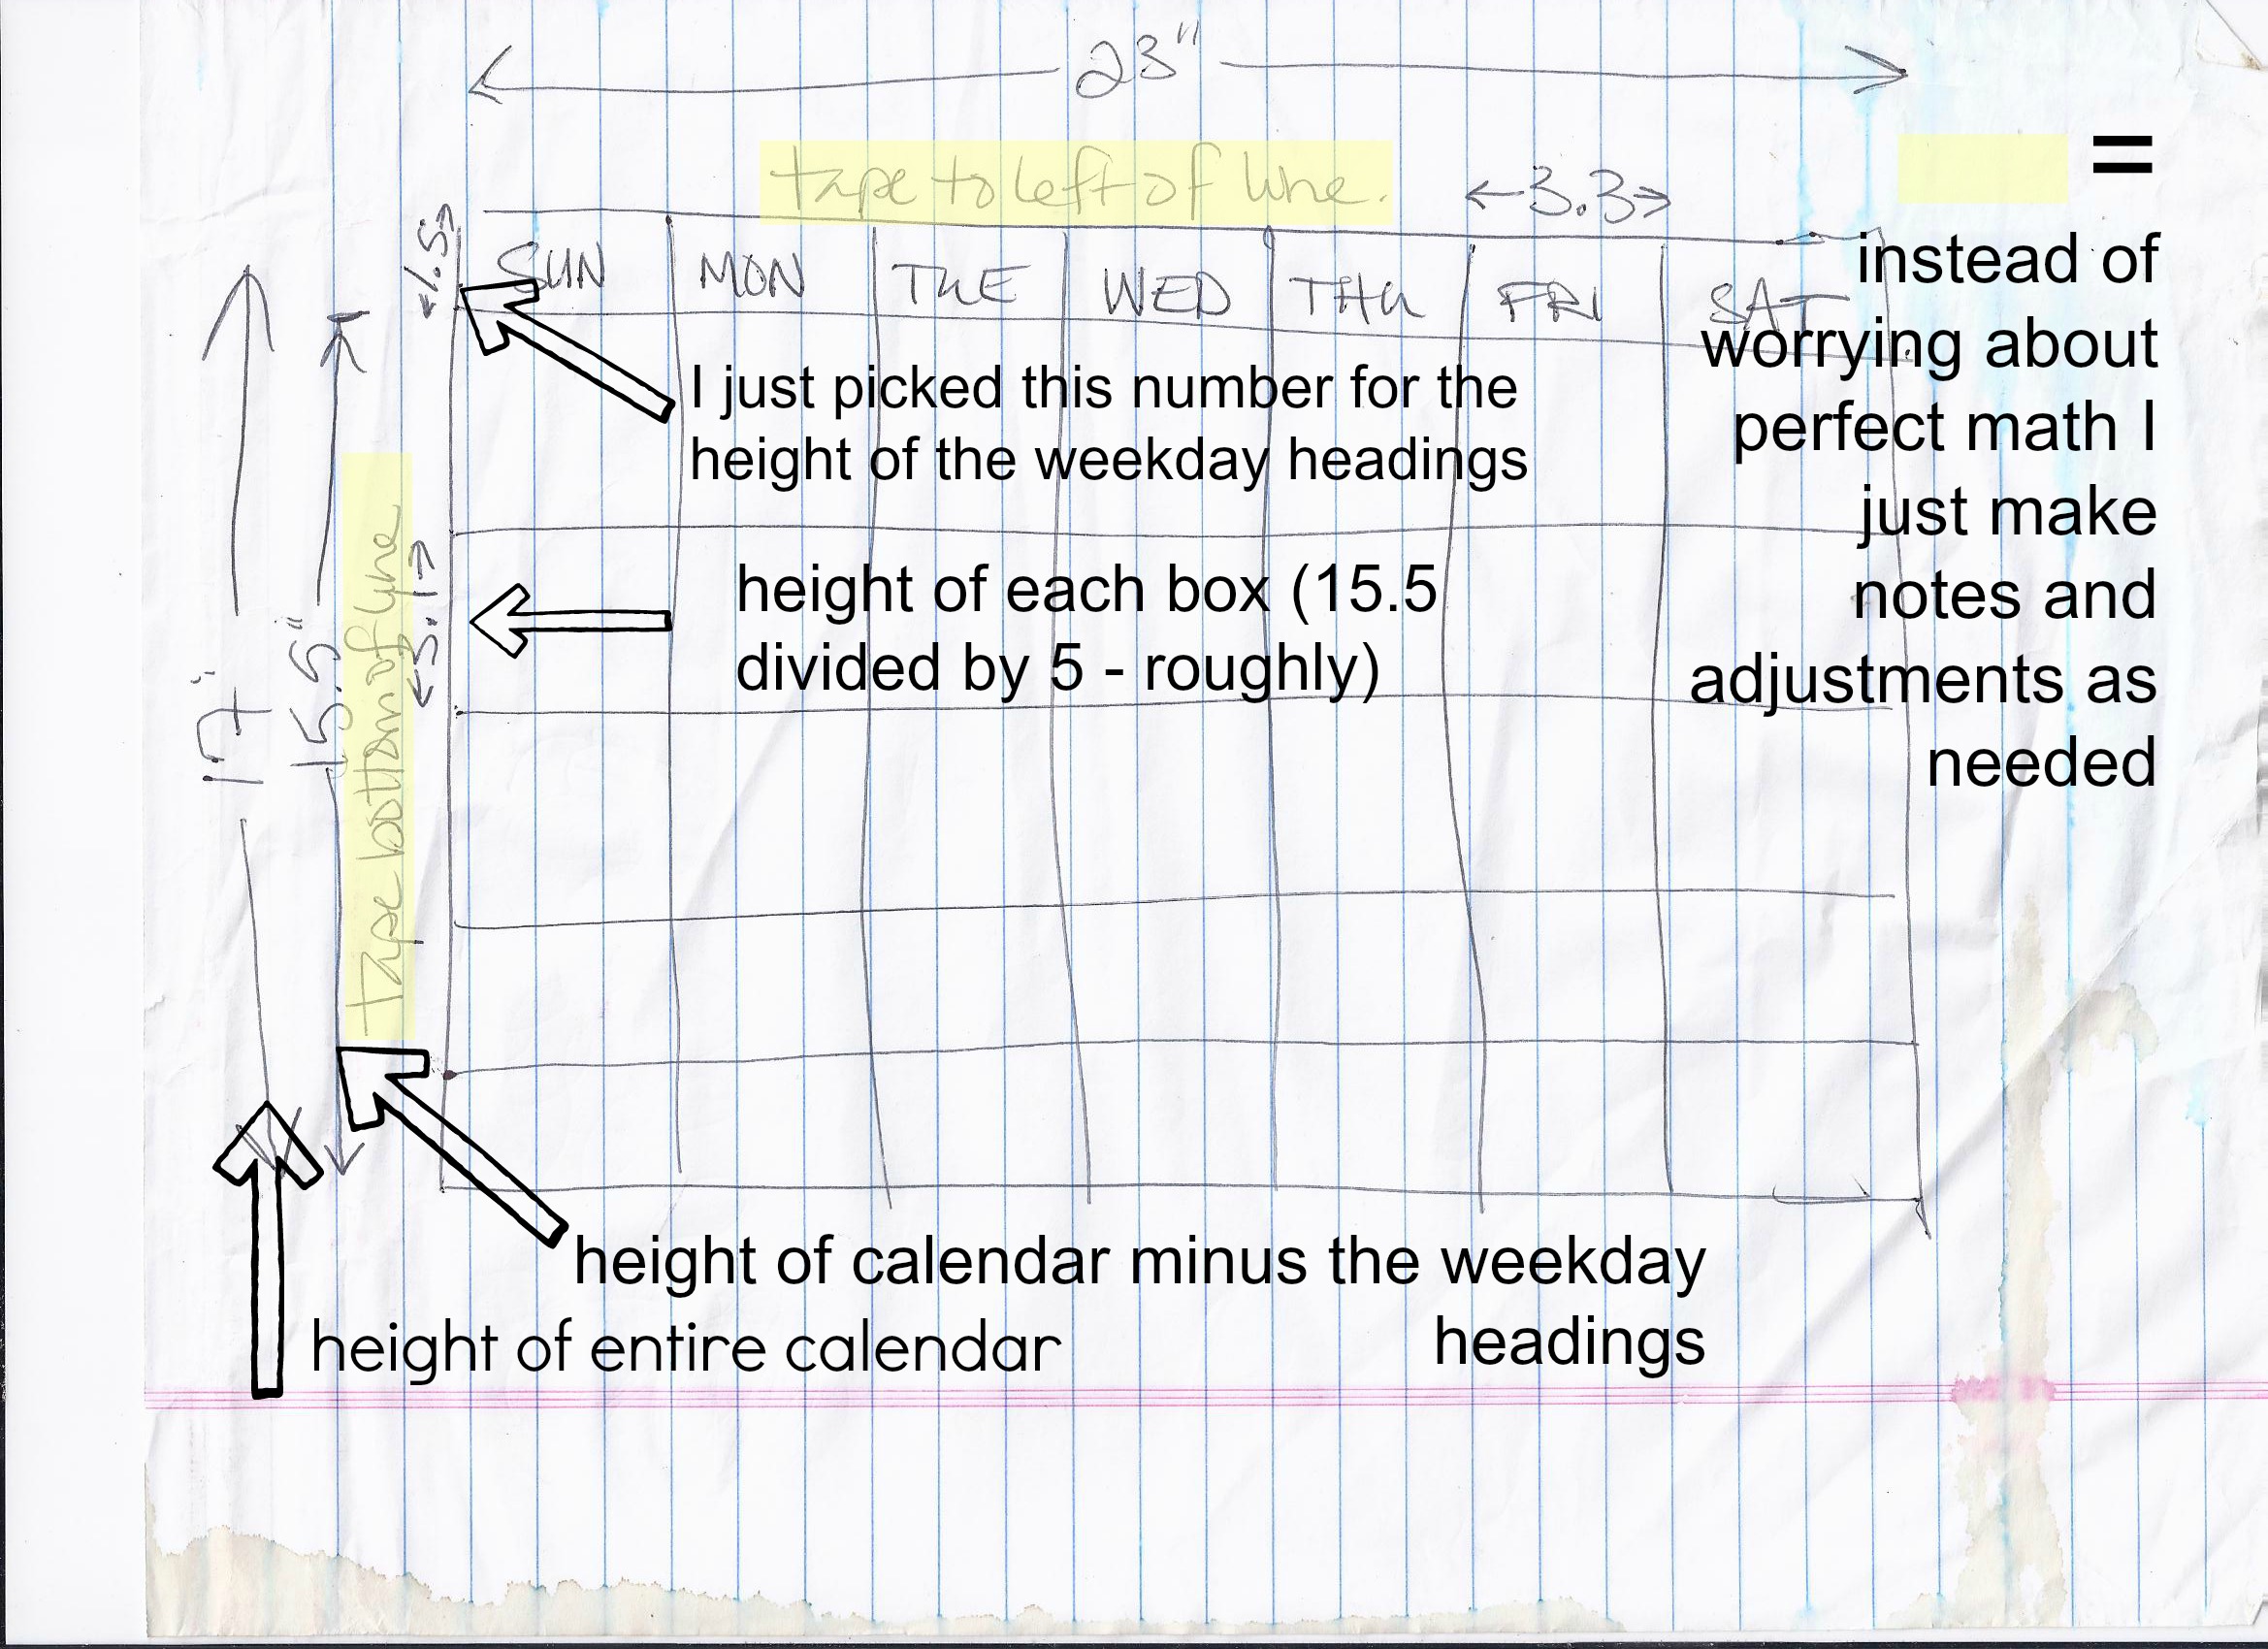 23"
tape to left of line.
=
←3.3→
←1.5→
SUN MON TUE WED THU FRI SAT
instead of
worrying about
perfect math I
just make
notes and
adjustments as
needed
I just picked this number for the
height of the weekday headings
17"
15.5"
tape bottom of line
←3.1→
height of each box (15.5
divided by 5 - roughly)
height of calendar minus the weekday
headings
height of entire calendar